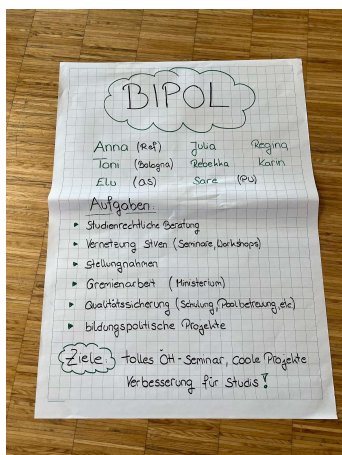 BIPOL
Anna (Ref) Julia Regina
Toni (Bologna) Rebekka Karin
Elu (as) Sare (PU)
Aufgaben:
Studienrechtliche Beratung
Vernetzung StVen (Seminare, Workshops)
Stellungnahmen
Gremienarbeit (Ministerium)
Qualitätssicherung (Schulung, Poolbetreuung, etc)
bildungspolitische Projekte
Ziele: tolles ÖH-Seminar, coole Projekte
Verbesserung für Studis!